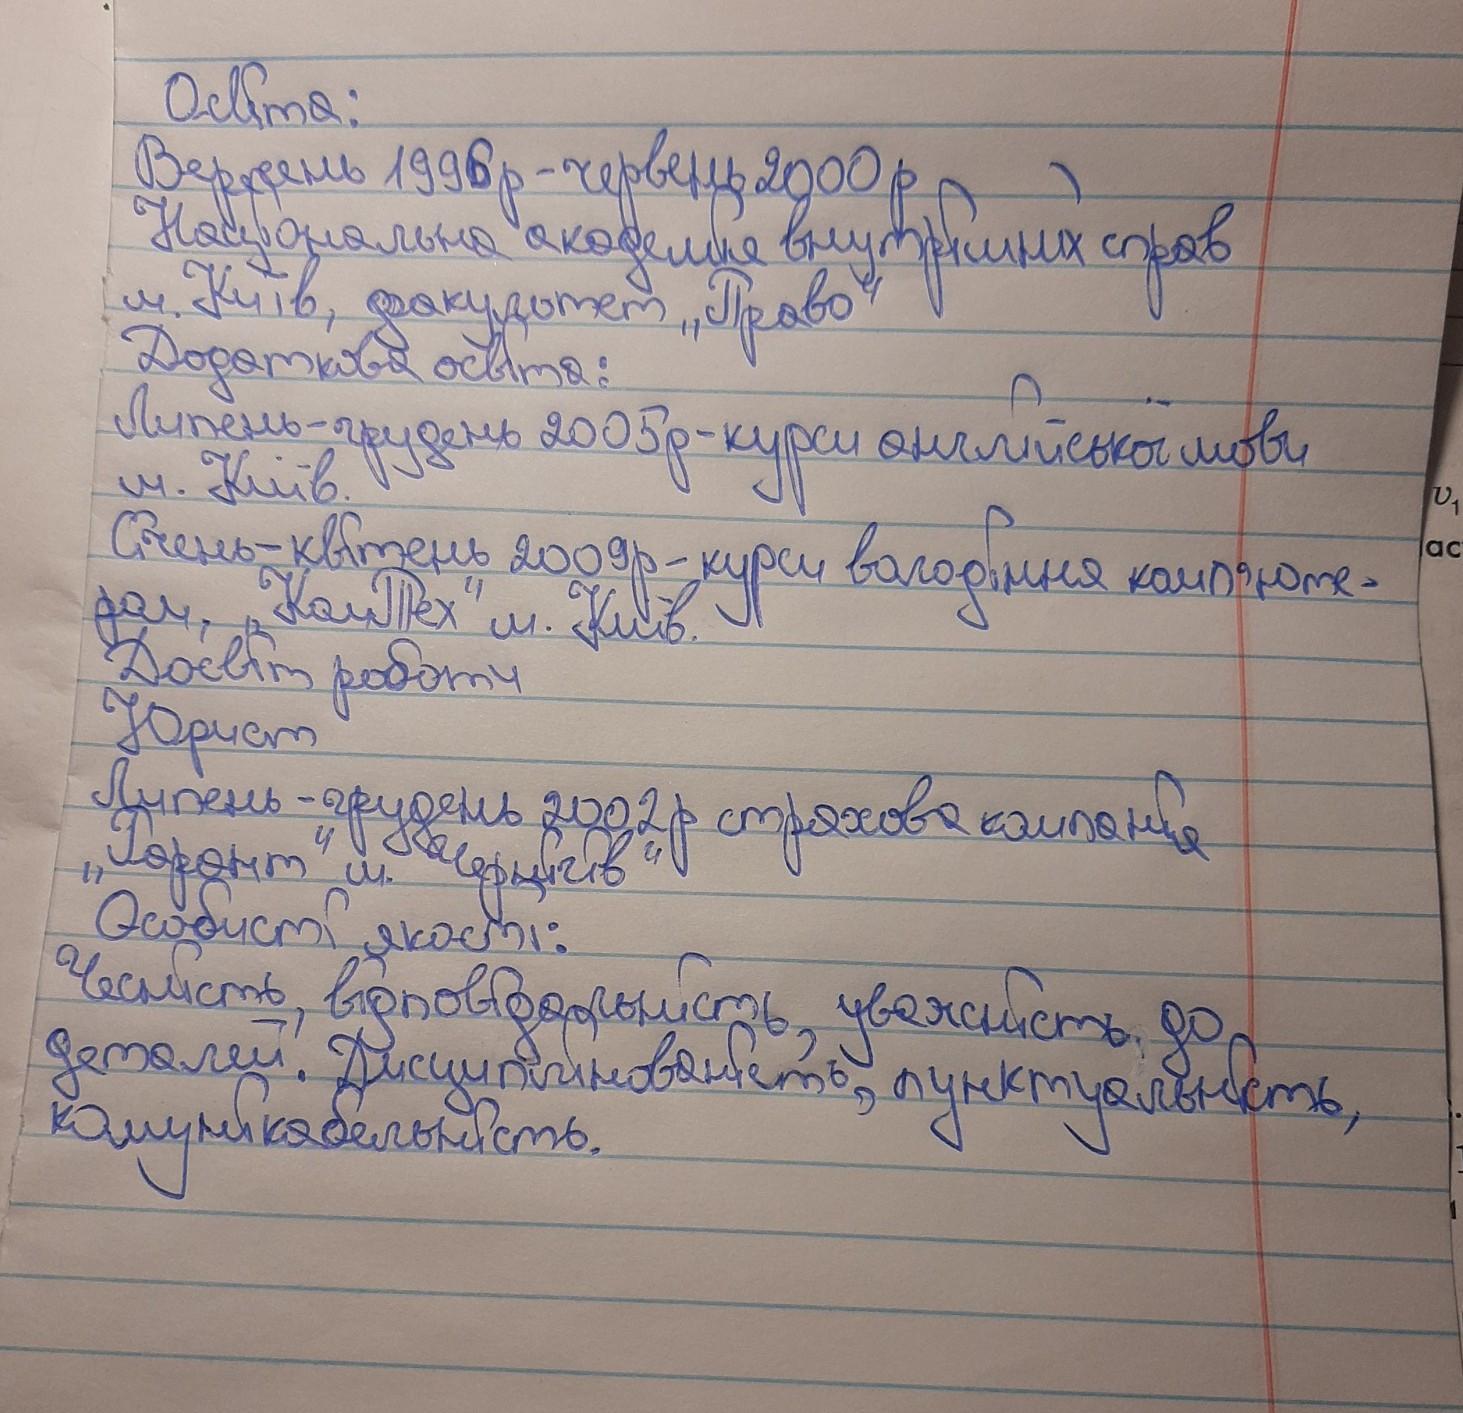 Освіта:
Вересень 1996р - червень 2000р
Національна академія внутрішніх справ
м. Київ, факультет „Право“
Додаткова освіта:
Липень-грудень 2005р - курси англійської мови
м. Київ.
Січень-квітень 2009р - курси володіння комп'юте-
ром, „КомТех“ м. Київ.
Досвіт роботи
Юрист
Липень-грудень 2002р страхова компанія
„Гарант“ м. „Чернігів“
Особисті якості:
Чесність, відповідальність, уважність до
деталей. Дисциплінованість, пунктуальність,
комунікабельність.
v₁
ас